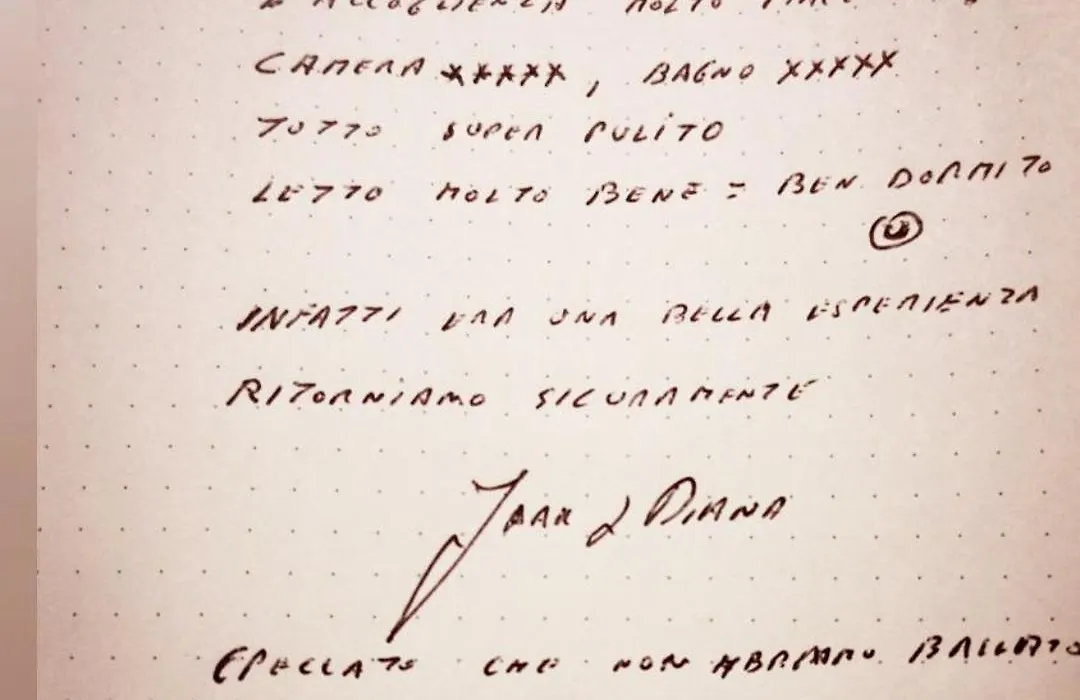 E ACCOGLIENZA MOLTO
CAMERA xxxxx, BAGNO xxxxx
TUTTO SUPER PULITO
LETTO MOLTO BENE = BEN DORMITO
INFATTI ERA UNA BELLA ESPERIENZA
RITORNIAMO SICURAMENTE
& DIANA
(PECCATO CHE NON ABBIAMO BALLATO